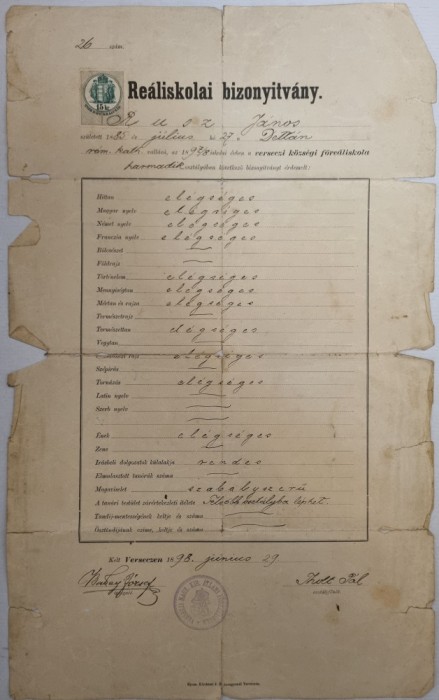 26 szám.
15 kr
Reáliskolai bizonyitvány.
Rusz János
született 1885 év július hó 27. Dettán
róm. kath. vallású, az 1897/8 iskolai évben a verseczi községi főreáliskola
harmadik osztályában következő bizonyitványt érdemelt:
Hittan elégséges
Magyar nyelv elégséges
Német nyelv elégséges
Franczia nyelv elégséges
Bölcsészet
Földrajz
Történelem elégséges
Mennyiségtan elégséges
Mértan és rajza elégséges
Természetrajz
Természettan elégséges
Vegytan
rajz elégséges
Szépírás
Tornázás elégséges
Latin nyelv
Szerb nyelv
Ének elégséges
Zene
Irásbeli dolgozatok külalakja rendes
Elmulasztott tanórák száma
Magaviselet szabályszerű
A tanári testület zárértekezleti itélete osztályba léphet.
Tandíj-mentességének kelte és száma
Ösztöndíjának czíme, kelte és száma
Kelt Verseczen 1898. június 29.
József
Pál